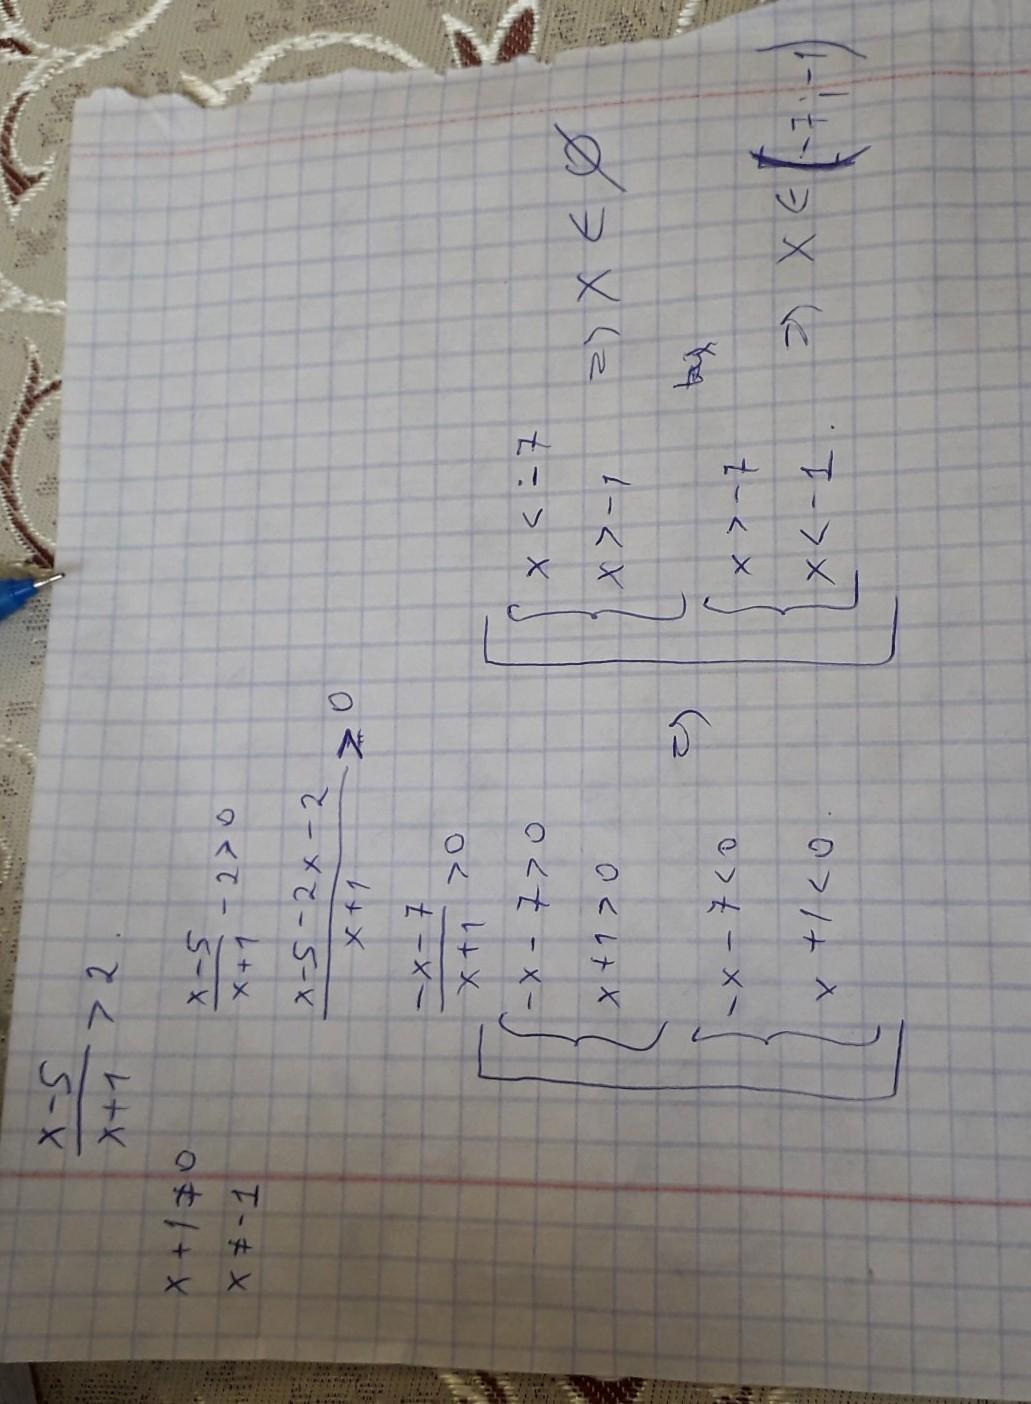 x-5/x+1 > 2.
x+1≠0
x≠-1
x-5/x+1 -2>0
x-5-2x-2/x+1 ≥0
-x-7/x+1 >0
-x-7>0
x+1>0
-x-7<0
x+1<0
=>
x<-7
x>-1
=> x∈∅
x>-7
x<-1.
=> x∈(-7;-1)